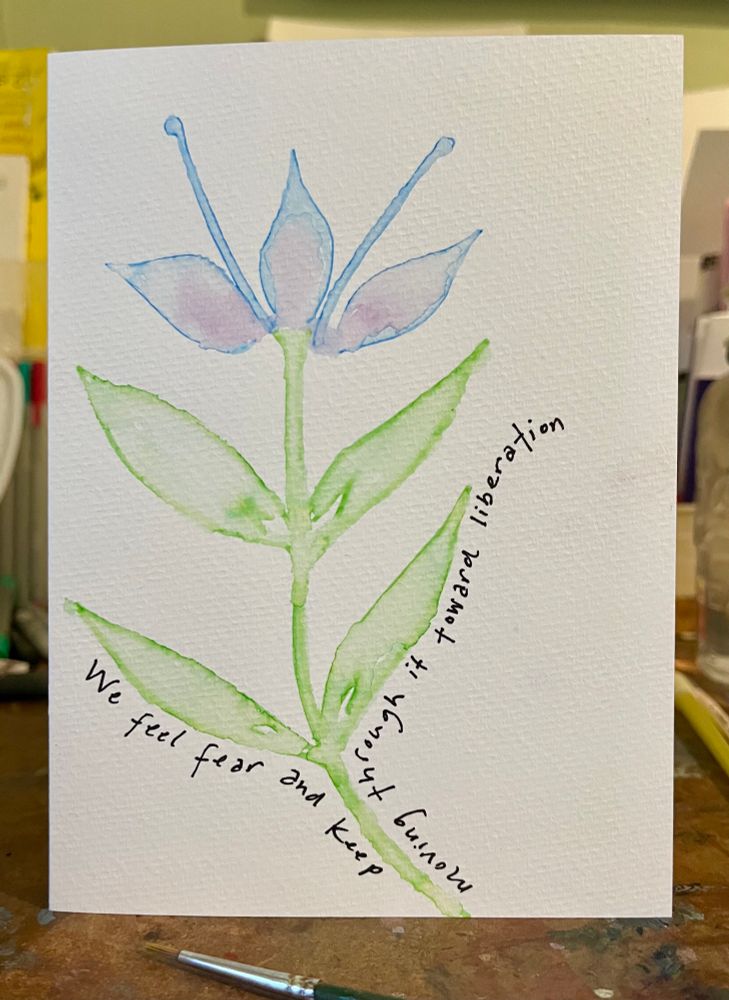 We feel fear and keep
moving through it toward liberation